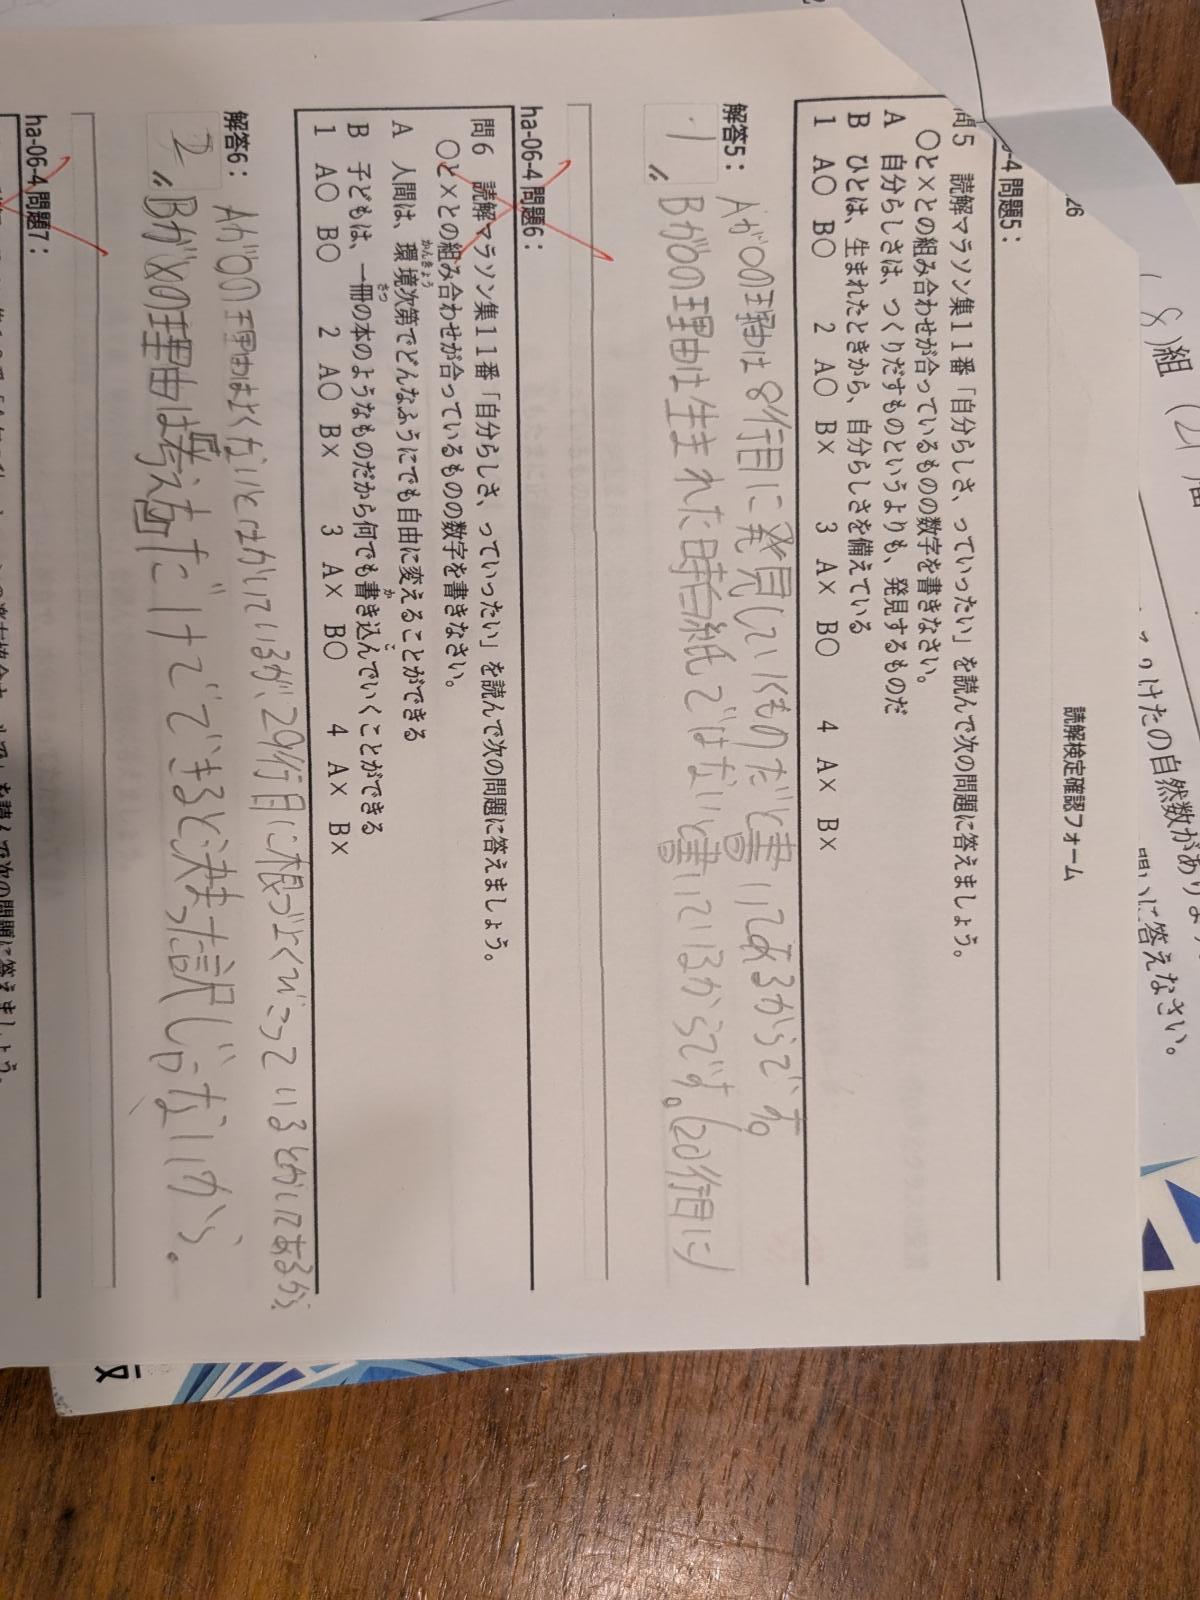 8)組 (21
つけたの自然数があります
問いに答えなさい。
26
読解検定確認フォーム
-4 問題5:
問5 読解マラソン集11番「自分らしさ、っていったい」を読んで次の問題に答えましょう。
○と×との組み合わせが合っているものの数字を書きなさい。
A 自分らしさは、つくりだすものというよりも、発見するものだ
B ひとは、生まれたときから、自分らしさを備えている
1 A○ B○ 2 A○ B× 3 A× B○ 4 A× B×
解答5:
1 〃
Aが○の理由は8行目に発見していくものだと書いてあるからです。
Bが○の理由は生まれた時白紙ではないと書いているからです。(20行目に)
ha-06-4 問題6:
問6 読解マラソン集11番「自分らしさ、っていったい」を読んで次の問題に答えましょう。
○と×との組み合わせが合っているものの数字を書きなさい。
A 人間は、環境次第でどんなふうにでも自由に変えることができる
かんきょう
B 子どもは、一冊の本のようなものだから何でも書き込んでいくことができる
さつ か こ
1 A○ B○ 2 A○ B× 3 A× B○ 4 A× B×
解答6:
2 〃
Aが○の理由はよくないとはかいているが、29行目に根づよくのこっているとかいてあるから
Bが×の理由は考えただけでできると決まった訳じゃないから。
ha-06-4 問題7:
を読んで次の問題に答えましょう。